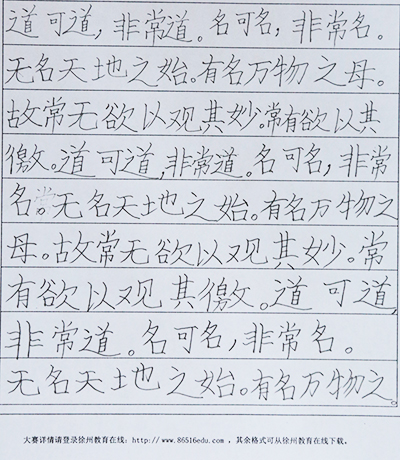 道可道，非常道。名可名，非常名。
无名天地之始。有名万物之母。
故常无欲以观其妙。常有欲以其
徼。道可道，非常道。名可名，非常
名。无名天地之始。有名万物之
母。故常无欲以观其妙。常
有欲以观其徼。道可道，
非常道。名可名，非常名。
无名天地之始。有名万物之。
大赛详情请登录徐州教育在线: http://www.86516edu.com ，其余格式可从徐州教育在线下载。